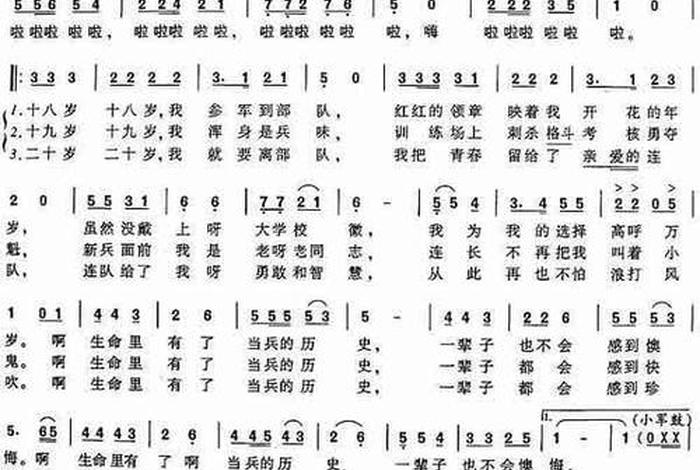 5 5 6 5 4 | 2 2 4 2 1 | 7 7 2 7 6 | 5 0 | 2 2 2 3 5 | 1 0
啦啦啦啦 啦, 啦啦啦啦 啦, 啦啦啦啦 啦, 嗨 啦啦啦啦 啦 啦。
3 3 3 | 2 2 2 2 | 3. 1 2 1 | 5 0 | 3 3 3 3 1 | 2 2 2 | 3. 1 2 3
1.十八岁 十八岁,我 参军到部 队, 红红的领章 映着我 开花的年
2.十九岁 十九岁,我 浑身是兵味, 训练场上 刺杀格斗考核勇夺
3.二十岁 二十岁,我 就要离部队, 我把青春 留给了亲爱的连
2 0 | 5 5 3 1 | 6 6 | 7 7 2 1 | 6 - | 5 5 4 | 3. 4 5 5 | 2 2 0 5
岁, 虽然没戴 上呀 大学校 徽, 我为 我的选择 高呼万
魁, 新兵面前 我是 老呀老同 志, 连长 不再把我 叫着小
队, 连队给了 我呀 勇敢和智 慧, 从此 再也不怕 浪打风
1 0 1 | 4 4 3 | 2 6 | 5 5 5 5 3 | 5 - | 4 4 3 | 2 2 6 | 5 5 5 3
岁。啊 生命里 有了 当兵的历 史, 一辈子 也不会 感到懊
鬼。啊 生命里 有了 当兵的历 史, 一辈子 都会 感到快
吹。啊 生命里 有了 当兵的历 史, 一辈子 都会 感到珍
1. (小军鼓)
5. 6 5 | 4 4 4 3 | 2 6 | 4 4 5 4 3 | 2 6 | 5 5 4 | 3 1 2 3 | 1 - | 1 (0 X X
悔。啊 生命里有 了啊 当兵的历 史, 一辈子 也不会懊 悔。